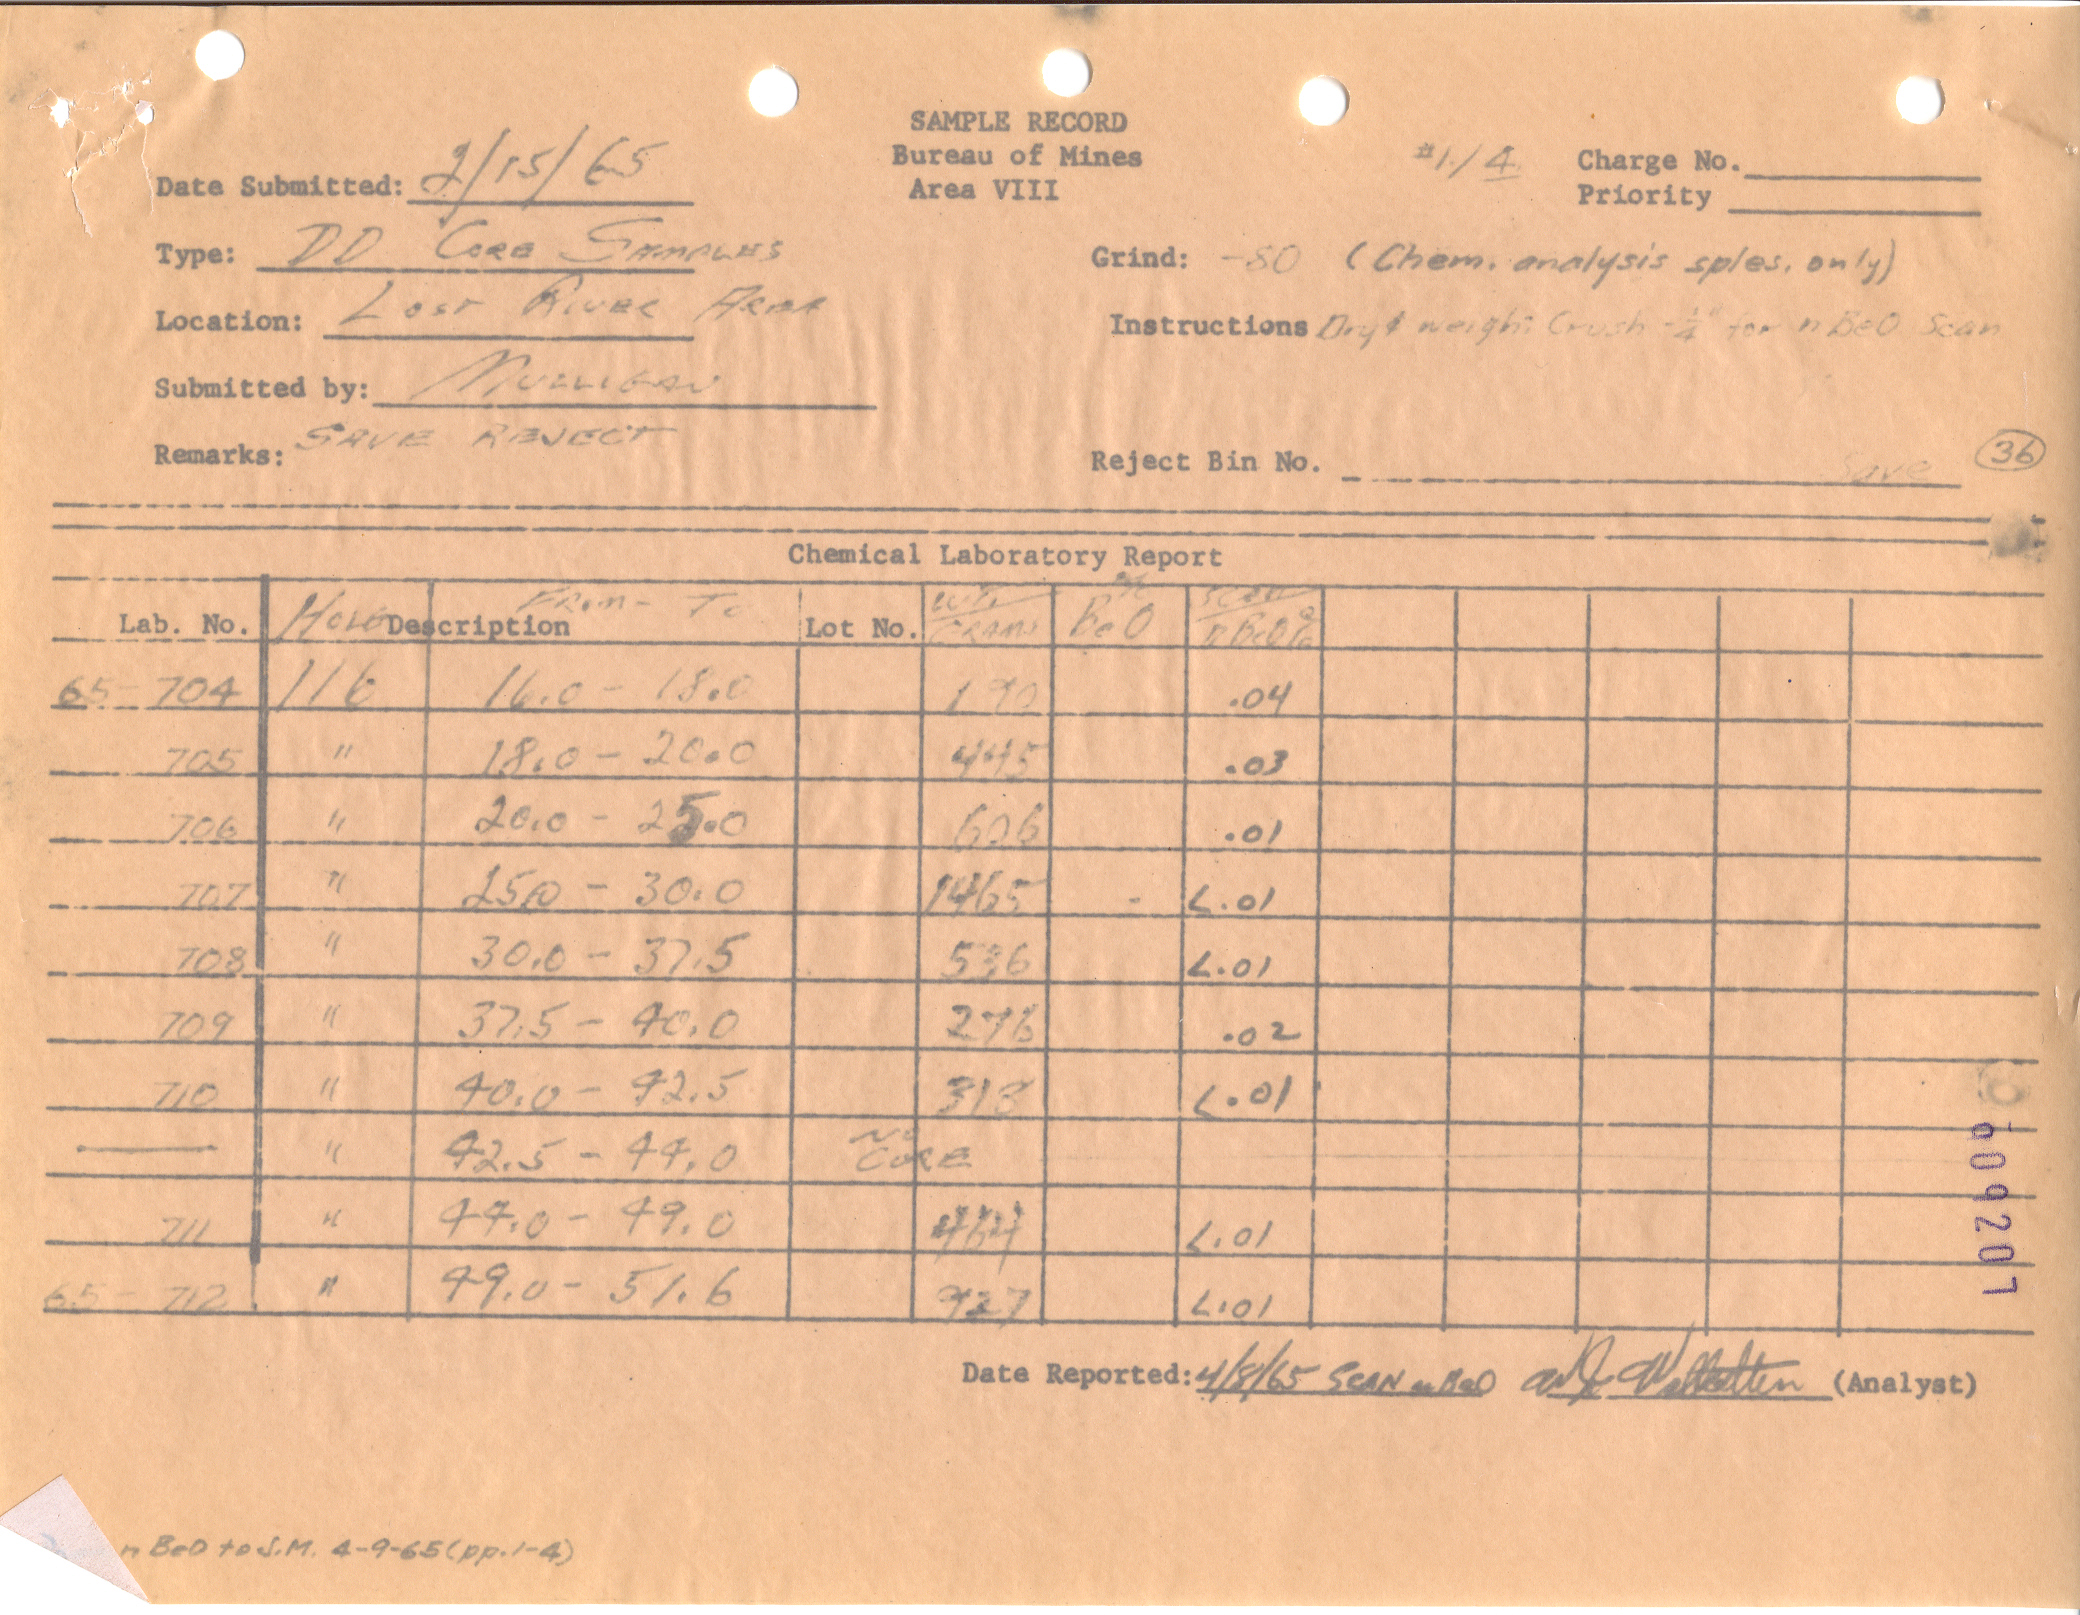 SAMPLE RECORD
Bureau of Mines
Area VIII
#1/4
Charge No.
Priority
Date Submitted: 2/15/65
Type: DD CORE SAMPLES
Grind: -80 (Chem. analysis sples. only)
Location: LOST RIVER AREA
Instructions Dry & weigh: Crush -1/4" for n BeO Scan
Submitted by: MULLIGAN
Remarks: SAVE REJECT
Reject Bin No. Save 36
Chemical Laboratory Report
Lab. No. HOLE Description FROM - TO Lot No. WT. GRAMS BeO SCAN n BeO %
65-704 116 16.0 - 18.0 190 .04
705 " 18.0 - 20.0 445 .03
706 " 20.0 - 25.0 606 .01
707 " 25.0 - 30.0 1465 - <.01
708 " 30.0 - 37.5 536 <.01
709 " 37.5 - 40.0 276 .02
710 " 40.0 - 42.5 318 <.01
— " 42.5 - 44.0 NO CORE
711 " 44.0 - 49.0 464 <.01
65-712 " 49.0 - 51.6 927 <.01
609201
Date Reported: 4/8/65 SCAN n BeO (Analyst)
n BeO to J.M. 4-9-65 (pp. 1-4)